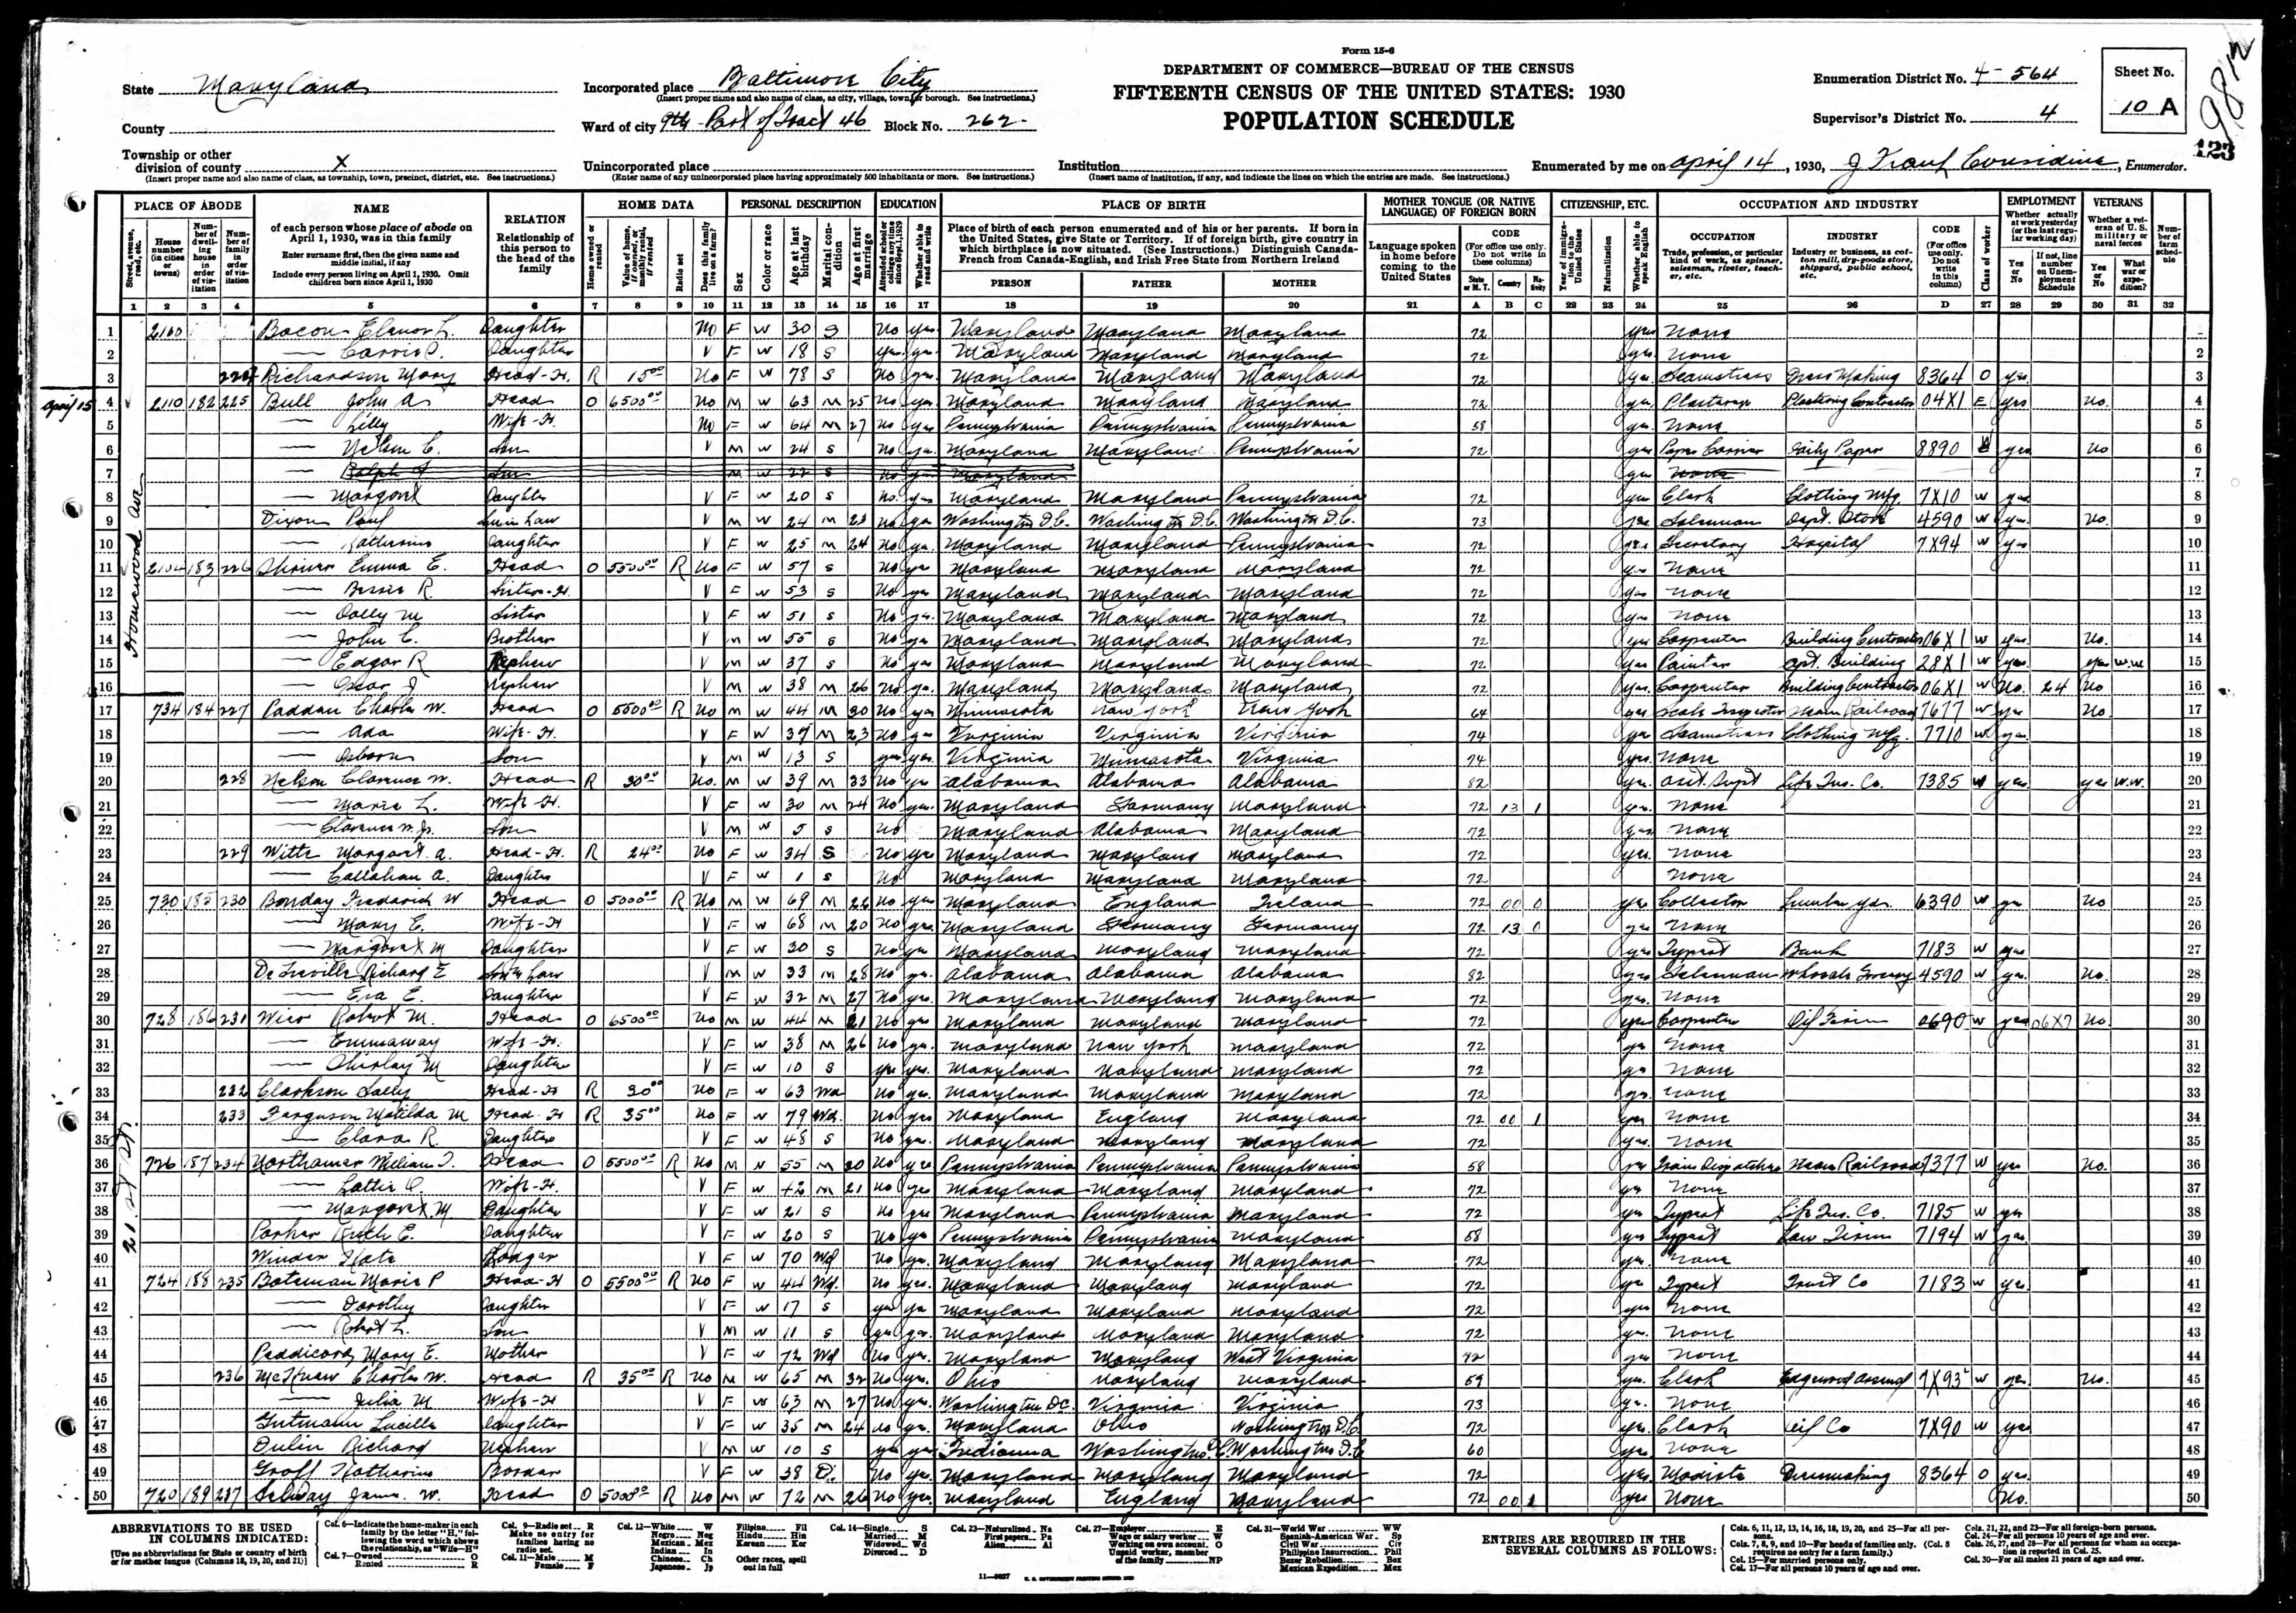 Form 15-6
DEPARTMENT OF COMMERCE—BUREAU OF THE CENSUS
FIFTEENTH CENSUS OF THE UNITED STATES: 1930
POPULATION SCHEDULE
State Maryland
County
Township or other division of county X
(Insert proper name and also name of class, as township, town, precinct, district, etc. See instructions.)
Incorporated place Baltimore City
(Insert proper name and also name of class, as city, village, town, or borough. See instructions.)
Ward of city 9th Part of Tract 46 Block No. 262
Unincorporated place
(Enter name of any unincorporated place having approximately 500 inhabitants or more. See instructions.)
Institution
(Insert name of institution, if any, and indicate the lines on which the entries are made. See instructions.)
Enumeration District No. 4-564
Supervisor's District No. 4
Sheet No.
10 A
9812
123
Enumerated by me on April 14, 1930, J Frank Considine, Enumerator.
PLACE OF ABODE NAME RELATION HOME DATA PERSONAL DESCRIPTION EDUCATION PLACE OF BIRTH MOTHER TONGUE (OR NATIVE LANGUAGE) OF FOREIGN BORN CITIZENSHIP, ETC. OCCUPATION AND INDUSTRY EMPLOYMENT VETERANS
PERSON FATHER MOTHER
1 2 3 4 5 6 7 8 9 10 11 12 13 14 15 16 17 18 19 20 21 A B C 22 23 24 25 26 D 27 28 29 30 31 32
Homewood Ave
21 st St.
April 15
1 2100 Bacon Elenor L. Daughter No F W 30 S No yes Maryland Maryland Maryland 72 yes None
2 Carrie C. Daughter V F W 18 S yes yes Maryland Maryland Maryland 72 yes None 2
3 224 Richardson Mary Head-H. R 15 00 No F W 78 S No yes Maryland Maryland Maryland 72 yes Seamstress Dress Making 8364 O yes 3
4 2110 182 225 Bull John A. Head O 6500 00 No M W 63 M 25 No yes Maryland Maryland Maryland 72 yes Plasterer Plastering Contractor 04X1 E yes No. 4
5 Lilly Wife-H. No F W 64 M 27 No yes Pennsylvania Pennsylvania Pennsylvania 58 yes None 5
6 Nelson C. Son V M W 24 S No yes Maryland Maryland Pennsylvania 72 yes Paper Carrier Daily Paper 8890 W yes No 6
7 Ralph Son M W 22 S No yes Maryland yes None 7
8 Margaret Daughter V F W 20 S No yes Maryland Maryland Pennsylvania 72 yes Clerk Clothing Mfg 7X10 W yes 8
9 Dixon Paul Son in Law V M W 24 M 23 No yes Washington D.C. Washington D.C. Washington D.C. 73 yes Salesman Dept. Store 4590 W yes No. 9
10 Katherine Daughter V F W 25 M 24 No yes Maryland Maryland Pennsylvania 72 yes Secretary Hospital 7X94 W yes 10
11 2104 183 226 Shriver Emma E. Head O 5500 00 R No F W 57 S No yes Maryland Maryland Maryland 72 yes None 11
12 Bessie R. Sister-H. V F W 53 S No yes Maryland Maryland Maryland 72 yes None 12
13 Dolly M Sister V F W 51 S No yes Maryland Maryland Maryland 72 yes None 13
14 John C. Brother V M W 55 S No yes Maryland Maryland Maryland 72 yes Carpenter Building Contractor 06X1 W yes No. 14
15 Edgar R Nephew V M W 37 S No yes Maryland Maryland Maryland 72 yes Painter Apt. Building 28X1 W yes yes W.W 15
16 Oscar J Nephew V M W 38 M 26 No yes Maryland Maryland Maryland 72 yes Carpenter Building Contractor 06X1 W No. 24 No 16
17 734 184 227 Padden Charles W. Head O 5500 00 R No M W 44 M 30 No yes Minnesota New York New York 64 yes Scale Inspector Steam Railroad 7677 W yes No. 17
18 Ada Wife-H. V F W 37 M 23 No yes Virginia Virginia Virginia 74 yes Seamstress Clothing Mfg. 7710 W yes 18
19 Osborn Son V M W 13 S yes yes Virginia Minnesota Virginia 74 yes None 19
20 228 Nelson Clarence W. Head R 30 00 No. M W 39 M 33 No yes Alabama Alabama Alabama 82 yes Asst. Supt Life Ins. Co. 7385 W yes yes W.W. 20
21 Marie L. Wife-H. V F W 30 M 24 No yes Maryland Germany Maryland 72 13 1 yes None 21
22 Clarence W. Jr. Son V M W 5 S No Maryland Alabama Maryland 72 yes None 22
23 229 Witte Margaret A. Head-H. R 24 00 No F W 34 S No yes Maryland Maryland Maryland 72 yes None 23
24 Callahan A. Daughter V F W 1 S No Maryland Maryland Maryland 72 None 24
25 730 185 230 Bonday Frederick W Head O 5000 00 R No M W 69 M 22 No yes Maryland England Ireland 72 00 0 yes Collector Lumber yd. 6390 W yes No 25
26 Mary E. Wife-H V F W 68 M 20 No yes Maryland Germany Germany 72 13 0 yes None 26
27 Margaret M Daughter V F W 30 S No yes Maryland Maryland Maryland 72 yes Typest Bank 7183 W yes 27
28 Richard E Son in Law V M W 33 M 28 No yes Alabama Alabama Alabama 82 yes Salesman Wholesale Grocery 4590 W yes No. 28
29 Eva E. Daughter V F W 32 M 27 No yes Maryland Maryland Maryland 72 yes None 29
30 728 186 231 Robert M. Head O 6500 00 No M W 44 M 21 No yes Maryland Maryland Maryland 72 yes Carpenter Oil Firm 0690 W yes 06X7 No 30
31 Emmaway Wife-H. V F W 38 M 26 No yes Maryland New York Maryland 72 yes None 31
32 Shirley M Daughter V F W 10 S yes yes Maryland Maryland Maryland 72 yes None 32
33 232 Clarkson Sally Head-H R 30 00 No F W 63 Wd No yes Maryland Maryland Maryland 72 yes None 33
34 233 Ferguson Matilda M Head-H R 35 00 No F W 79 Wd. No yes Maryland England Maryland 72 00 1 yes None 34
35 Clara R. Daughter V F W 48 S No yes Maryland Maryland Maryland 72 yes None 35
36 726 187 234 Northamer William T. Head O 5500 00 R No M W 55 M 30 No yes Pennsylvania Pennsylvania Pennsylvania 58 yes Train Dispatcher Steam Railroad 7377 W yes No. 36
37 Lottie O. Wife-H. V F W 42 M 21 No yes Maryland Maryland Maryland 72 yes None 37
38 Margaret M Daughter V F W 21 S No yes Maryland Pennsylvania Maryland 72 yes Typest Life Ins. Co. 7185 W yes 38
39 Parker Ruth E. Daughter V F W 20 S No yes Pennsylvania Pennsylvania Maryland 58 yes Typest Law Firm 7194 W yes 39
40 Winder Kate Lodger V F W 70 Wd No yes Maryland Maryland Maryland 72 yes None 40
41 724 188 235 Bateman Marie P Head-H O 5500 00 R No F W 44 Wd. No yes Maryland Maryland Maryland 72 yes Typest Trust Co 7183 W yes 41
42 Dorothy Daughter V F W 17 S yes yes Maryland Maryland Maryland 72 yes None 42
43 Robert L. Son V M W 11 S yes yes Maryland Maryland Maryland 72 yes None 43
44 Peddicord Mary E. Mother V F W 72 Wd No yes Maryland Maryland West Virginia 72 yes None 44
45 236 Charles W. Head R 35 00 R No M W 65 M 32 No yes Ohio Maryland Maryland 59 yes Clerk Edgewood Arsenal 7X93 W yes No. 45
46 Julia M Wife-H V F W 63 M 27 No yes Washington DC. Virginia Virginia 73 yes None 46
47 Gutmann Lucille Daughter V F W 35 M 24 No yes Maryland Ohio Washington D.C. 72 yes Clerk Oil Co 7X90 W yes 47
48 Dulin Richard Nephew V M W 10 S yes yes Indianna Washington D.C. Washington D.C 60 yes None 48
49 Groff Katharine Boarder V F W 38 D. No yes Maryland Maryland Maryland 72 yes Modiste Dressmaking 8364 O yes 49
50 720 189 237 James W. Head O 5000 R No M W 72 M 26 No yes Maryland England Maryland 72 00 1 yes None No. 50
ABBREVIATIONS TO BE USED IN COLUMNS INDICATED:
[Use no abbreviations for State or country of birth or for mother tongue (Columns 18, 19, 20, and 21)]
Col. 6—Indicate the home-maker in each family by the letter "H," following the word which shows the relationship, as "Wife—H"
Col. 7—Owned O Rented R
Col. 9—Radio set R Make no entry for families having no radio set.
Col. 11—Male M Female F
Col. 12—White W Negro Neg Mexican Mex Indian In Chinese Ch Japanese Jp Filipino Fil Hindu Hin Korean Kor Other races, spell out in full
Col. 14—Single S Married M Widowed Wd Divorced D
Col. 23—Naturalized Na First papers Pa Alien Al
Col. 27—Employer E Wage or salary worker W Working on own account O Unpaid worker, member of the family NP
Col. 31—World War WW Spanish-American War Sp Civil War Civ Philippine Insurrection Phil Boxer Rebellion Box Mexican Expedition Mex
ENTRIES ARE REQUIRED IN THE SEVERAL COLUMNS AS FOLLOWS:
Cols. 6, 11, 12, 13, 14, 16, 18, 19, 20, and 25—For all persons.
Cols. 7, 8, 9, and 10—For heads of families only. (Col. 8 requires no entry for a farm family.)
Col. 15—For married persons only.
Col. 17—For all persons 10 years of age and over.
Cols. 21, 22, and 23—For all foreign-born persons.
Col. 24—For all persons 10 years of age and over.
Cols. 26, 27, and 28—For all persons for whom an occupation is reported in Col. 25.
Col. 30—For all males 21 years of age and over.